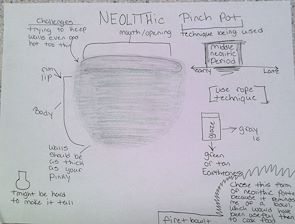 NEOLITHIC Pinch Pot
Challenges
trying to keep
walls even and
not too thin
mouth/opening
technique being used
middle
neolitic
Period
early
Late
rim
lip
use rope
technique
Body
glaze
gray
green
or tan
Earthtones
walls
should be
as thick
as your
pinky
might be hard
to make it tall
Chose this form
of neolitic Pottery
because it reminds
me of a bowl,
which would have
been useful then
to cook food
first bowl